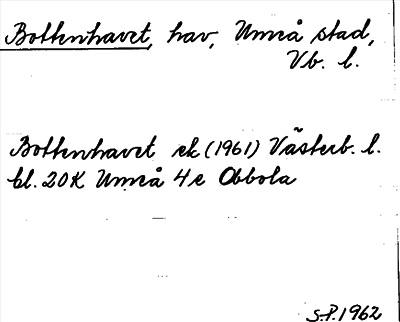 Bottenhavet, hav, Umeå stad,
Vb. l.
Bottenhavet ek (1961) Västerb. l.
bl. 20K Umeå 4e Obbola
S.P. 1962